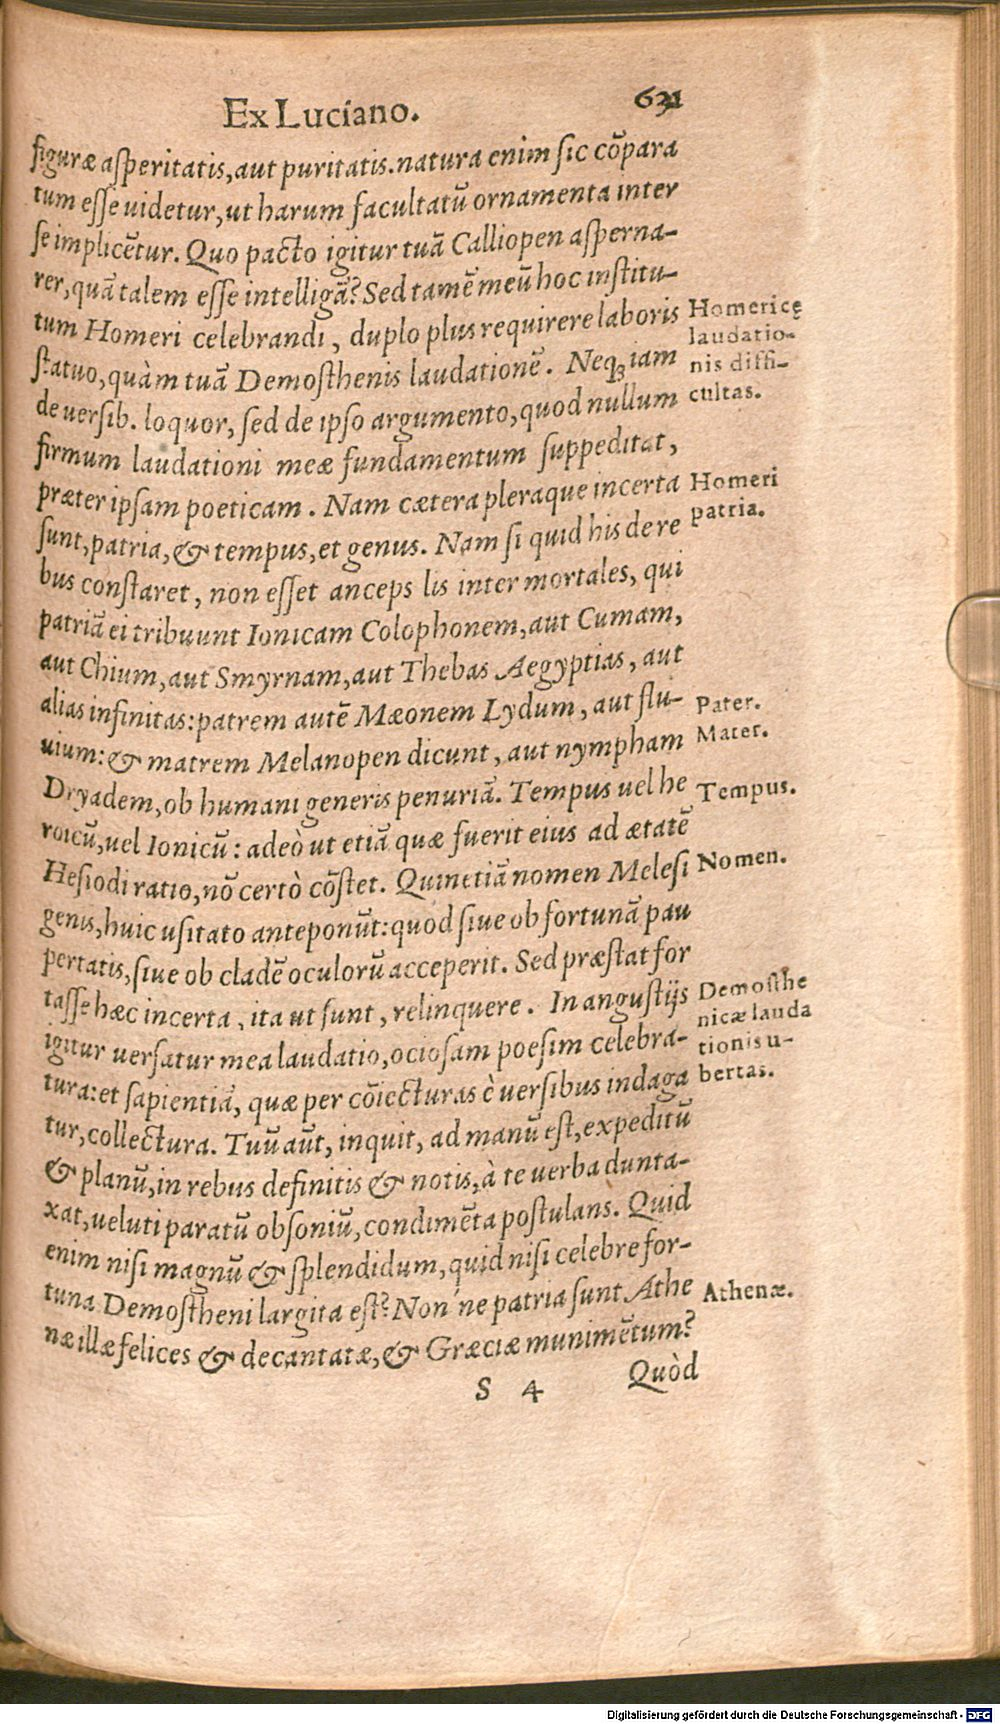 Ex Luciano. 631
figuræ asperitatis, aut puritatis. natura enim sic cōpara
tum esse uidetur, ut harum facultatū ornamenta inter
se implicētur. Quo pacto igitur tuā Calliopen asperna-
rer, quā talem esse intelligā? Sed tamē meū hoc institu-
tum Homeri celebrandi, duplo plus requirere laboris
statuo, quàm tuā Demosthenis laudationē. Neq; iam
de uersib. loquor, sed de ipso argumento, quod nullum
firmum laudationi meæ fundamentum suppeditat,
præter ipsam poeticam. Nam cætera pleraque incerta
sunt, patria, & tempus, et genus. Nam si quid his de re
bus constaret, non esset anceps lis inter mortales, qui
patriā ei tribuunt Ionicam Colophonem, aut Cumam,
aut Chium, aut Smyrnam, aut Thebas Aegyptias, aut
alias infinitas: patrem autē Mæonem Lydum, aut flu-
uium: & matrem Melanopen dicunt, aut nympham
Dryadem, ob humani generis penuriā. Tempus uel he
roicū, uel Ionicū: adeò ut etiā quæ fuerit eius ad ætatē
Hesiodi ratio, nō certò cōstet. Quinetiā nomen Melesi
genis, huic usitato anteponūt: quod siue ob fortunā pau
pertatis, siue ob cladē oculorū acceperit. Sed præstat for
tasse hæc incerta, ita ut sunt, relinquere. In angustijs
igitur uersatur mea laudatio, ociosam poesim celebra-
tura: et sapientiā, quæ per cōiecturas è uersibus indaga
tur, collectura. Tuū aūt, inquit, ad manū est, expeditū
& planū, in rebus definitis & notis, à te uerba dunta-
xat, ueluti paratū obsoniū, condimēta postulans. Quid
enim nisi magnū & splendidum, quid nisi celebre for-
tuna Demostheni largita est? Non'ne patria sunt Athe
næ illæ felices & decantatæ, & Græciæ munimētum?
S 4 Quòd
Homericę
laudatio-
nis diffi-
cultas.
Homeri
patria.
Pater.
Mater.
Tempus.
Nomen.
Demosthe
nicæ lauda
tionis u-
bertas.
Athenæ.
Digitalisierung gefördert durch die Deutsche Forschungsgemeinschaft - DFG